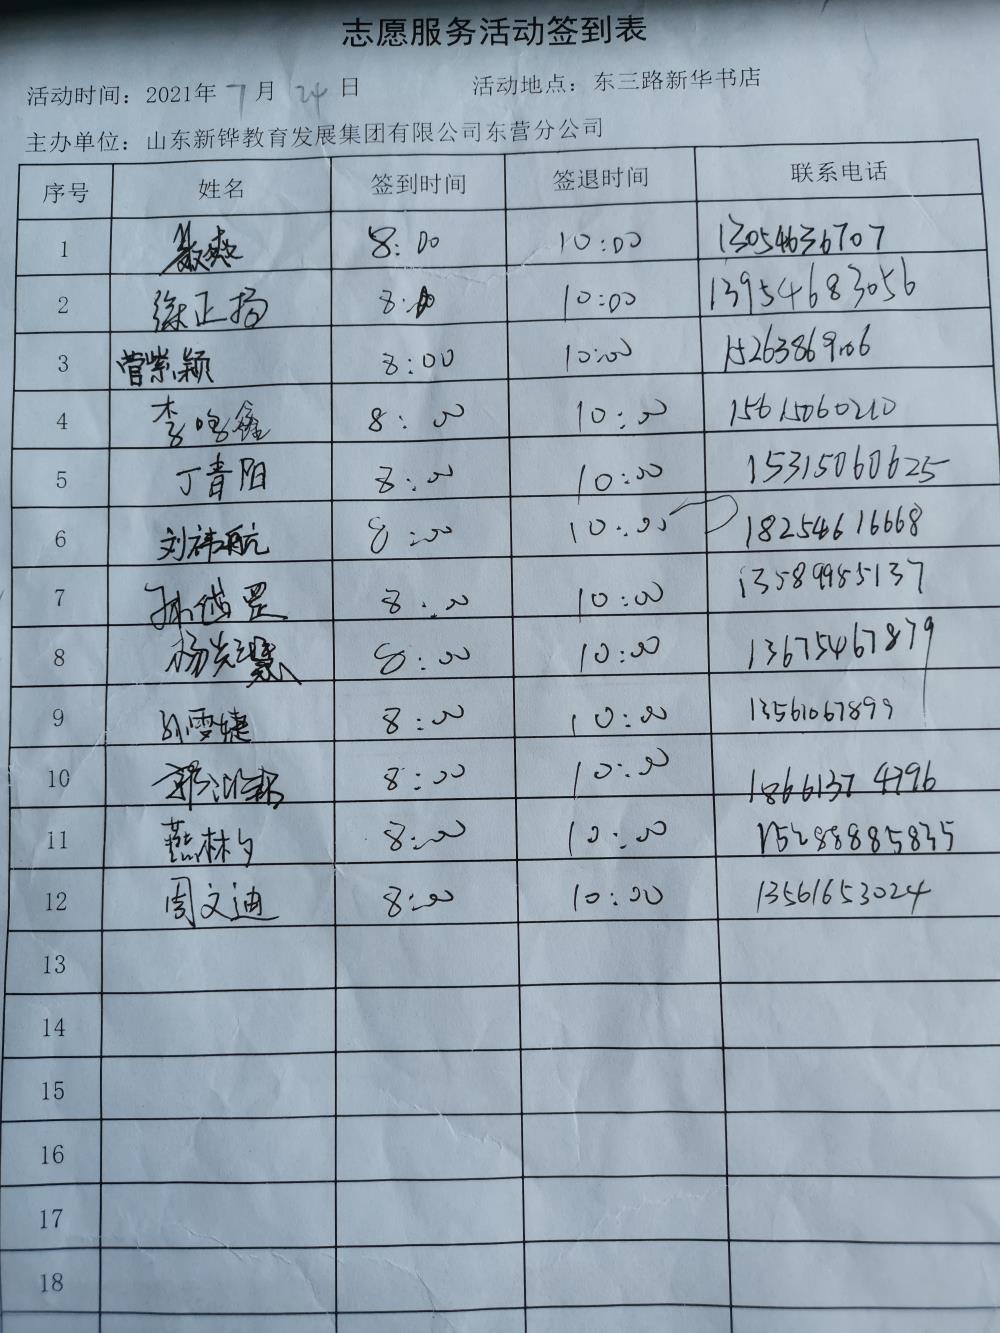 志愿服务活动签到表
活动时间：2021年 7 月 24 日 活动地点：东三路新华书店
主办单位：山东新铧教育发展集团有限公司东营分公司
序号 姓名 签到时间 签退时间 联系电话
1 8:00 10:00 13054636707
2 徐正扬 8:00 10:00 13954683056
3 管紫颖 8:00 10:00 15263869106
4 李鸣鑫 8:00 10:00 15615060210
5 丁青阳 8:00 10:00 15315060625
6 刘祎航 8:00 10:00 18254616668
7 8:00 10:00 13589985137
8 杨 8:00 10:00 13675467879
9 孙雯婕 8:00 10:00 13561067899
10 8:00 10:00 18661374796
11 燕林夕 8:00 10:00 15288885835
12 周文迪 8:00 10:00 13561653024
13
14
15
16
17
18